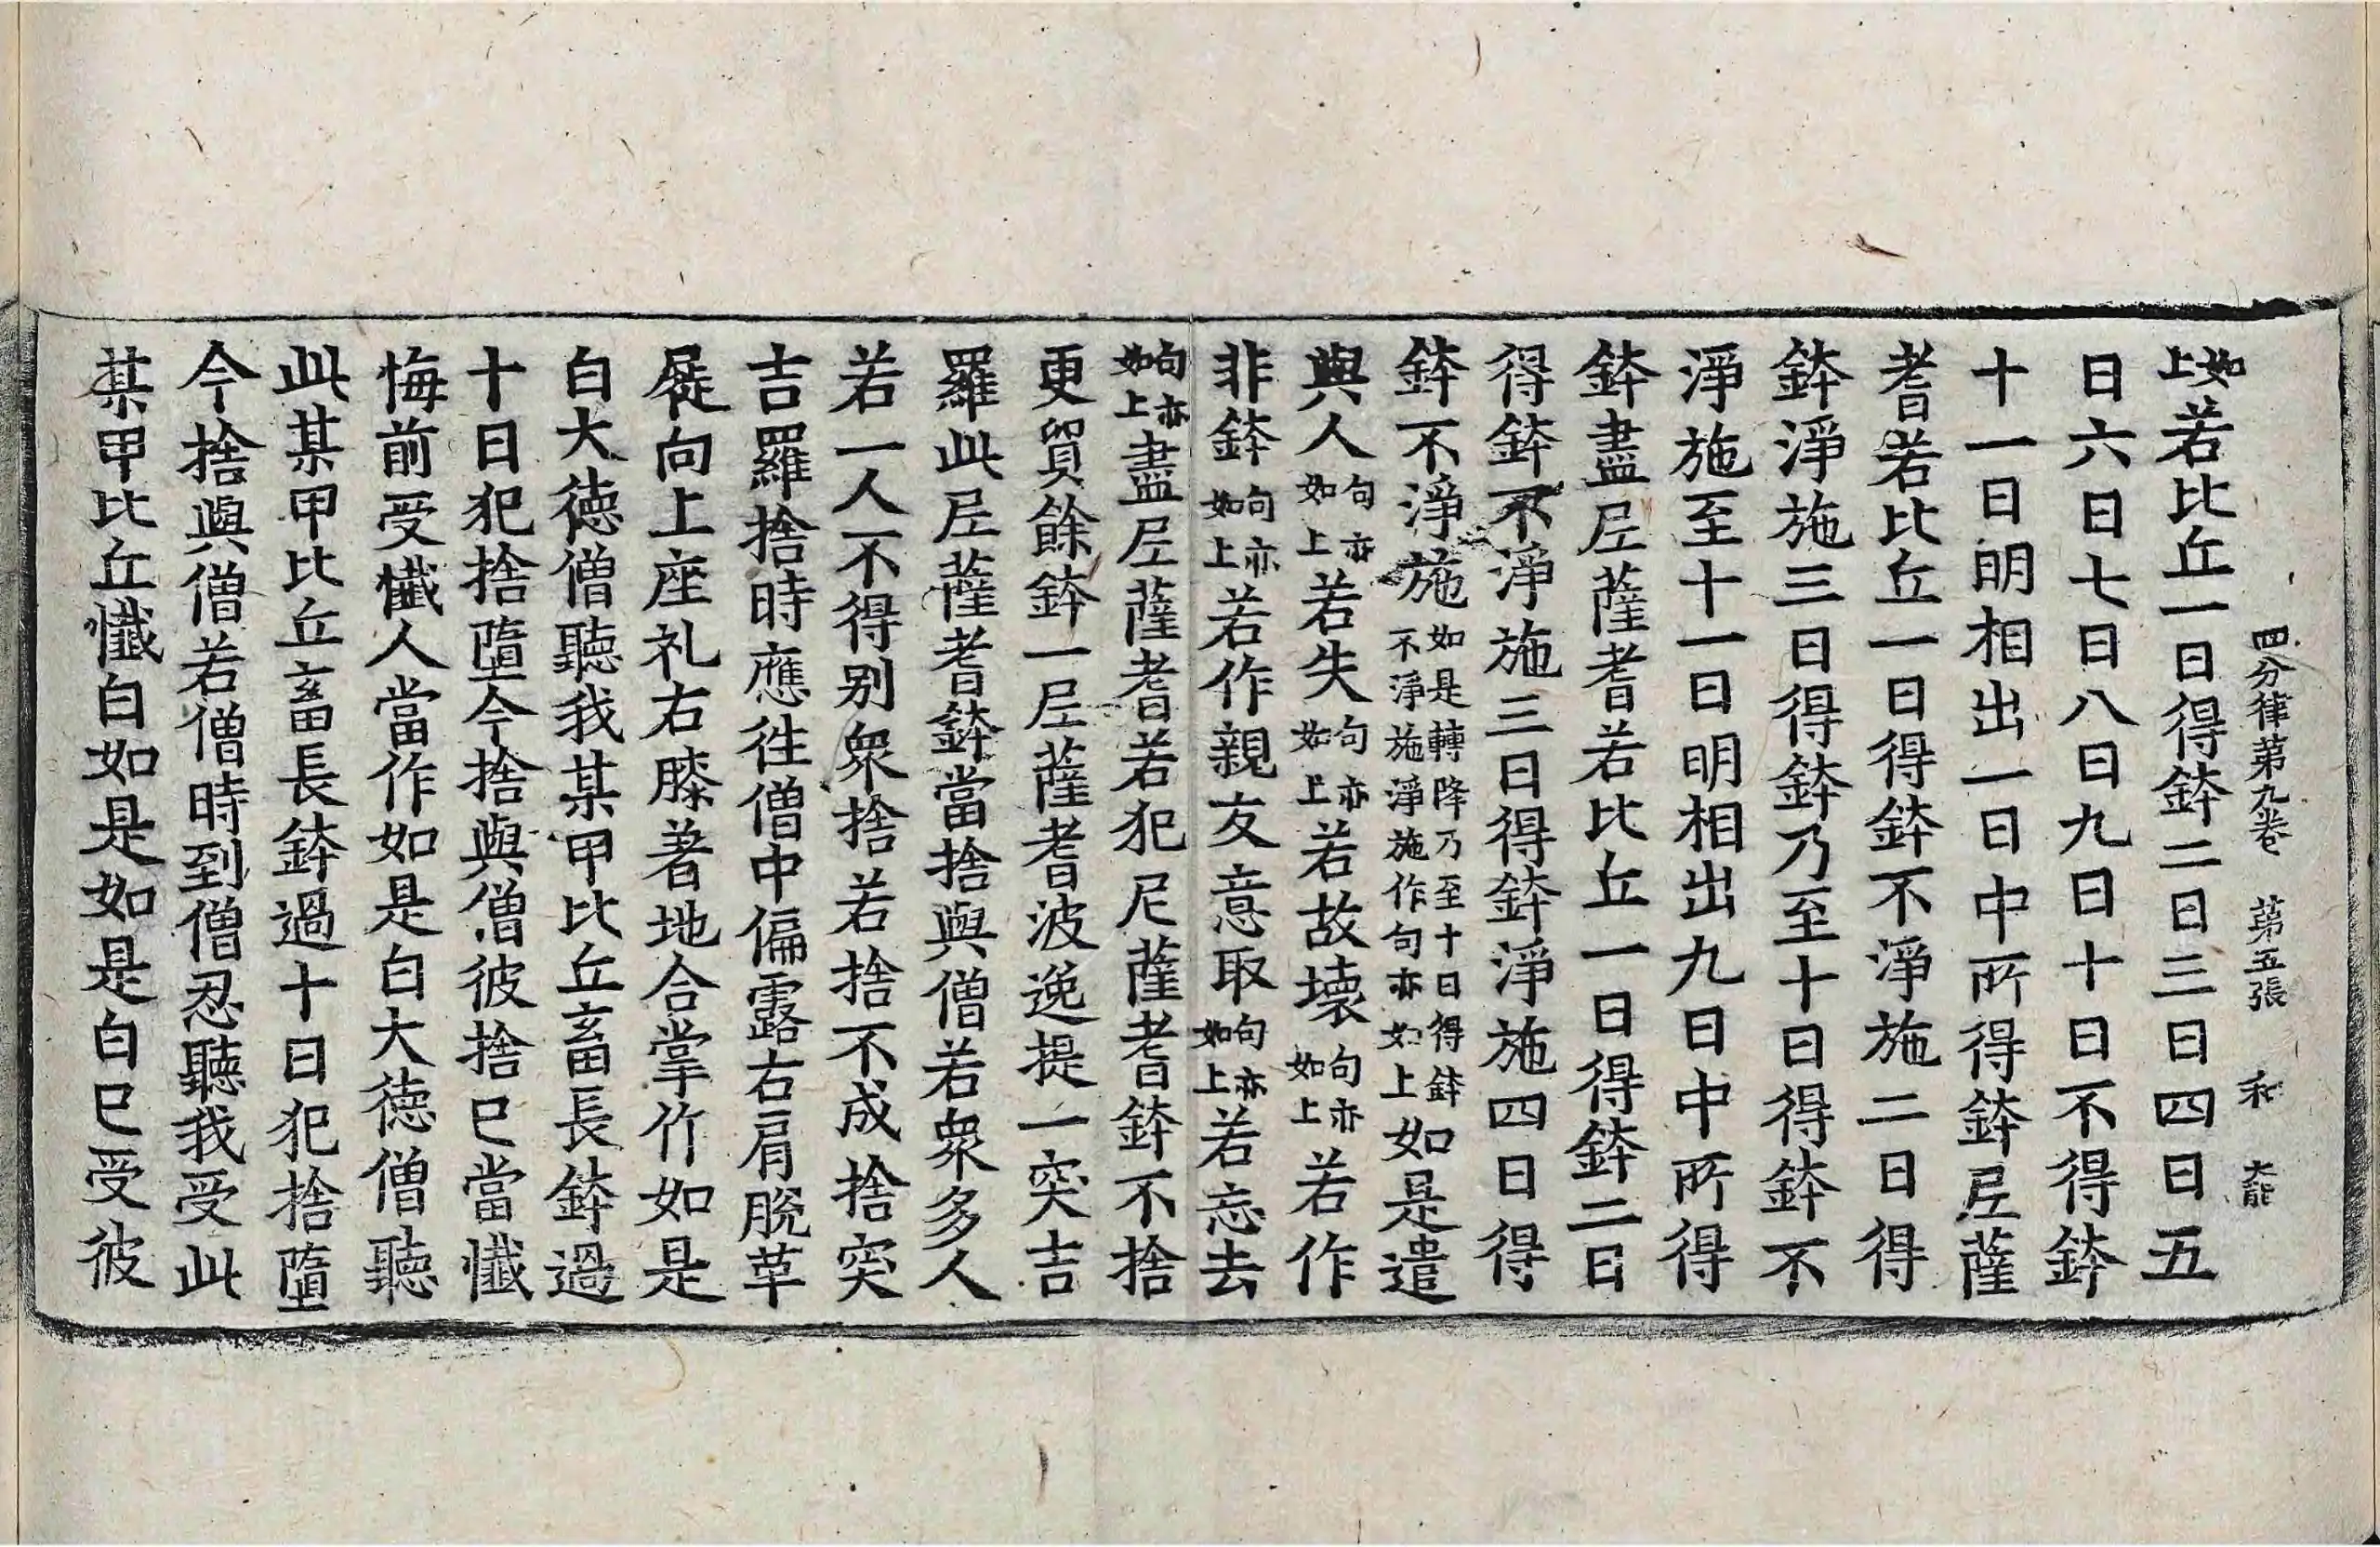 四分律第九卷 第五張 和
如上若比丘一日得鉢二日三日四日五
日六日七日八日九日十日不得鉢
十一日明相出一日中所得鉢尼薩
耆若比丘一日得鉢不淨施二日得
鉢淨施三日得鉢乃至十日得鉢不
淨施至十一日明相出九日中所得
鉢盡尼薩耆若比丘一日得鉢二日
得鉢不淨施三日得鉢淨施四日得
鉢不淨施如是轉降乃至十日得鉢不淨施淨施作句亦如上如是遣
與人句亦如上若失句亦如上若故壞句亦如上若作
非鉢句亦如上若作親友意取句亦如上若忘去
句亦如上盡尼薩耆若犯尼薩耆鉢不捨
更貿餘鉢一尼薩耆波逸提一突吉
羅此尼薩耆鉢當捨與僧若眾多人
若一人不得別眾捨若捨不成捨突
吉羅捨時應徃僧中偏露右肩脫革
屣向上座礼右膝著地合掌作如是
白大德僧聽我某甲比丘畜長鉢過
十日犯捨墮今捨與僧彼捨已當懺
悔前受懺人當作如是白大德僧聽
此某甲比丘畜長鉢過十日犯捨墮
今捨與僧若僧時到僧忍聽我受此
某甲比丘懺白如是如是白已受彼